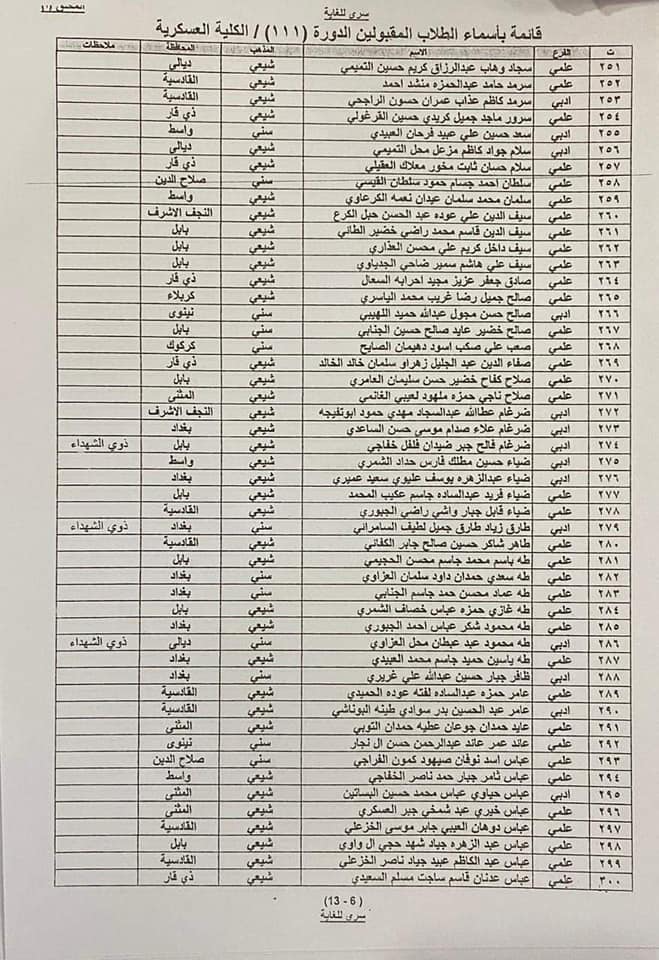 سري للغاية
قائمة بأسماء الطلاب المقبولين الدورة (١١١) / الكلية العسكرية
ت الفرع الاسم المذهب المحافظة ملاحظات
٢٥١ علمي سجاد وهاب عبدالرزاق كريم حسين التميمي شيعي ديالى
٢٥٢ علمي سرمد حامد عبدالحمزه منشد احمد شيعي القادسية
٢٥٣ ادبي سرمد كاظم عذاب عمران حسون الراجحي شيعي القادسية
٢٥٤ علمي سرور ماجد جميل كريدي حسين القرغولي شيعي ذي قار
٢٥٥ ادبي سعد حسين علي عبيد فرحان العبيدي سني واسط
٢٥٦ ادبي سلام جواد كاظم مزعل محل التميمي شيعي ديالى
٢٥٧ علمي سلام حسان ثابت مخور معلاك العقيلي شيعي ذي قار
٢٥٨ علمي سلطان احمد جسام حمود سلطان القيسي سني صلاح الدين
٢٥٩ علمي سلمان محمد سلمان عيدان نعمه الكرعاوي شيعي واسط
٢٦٠ علمي سيف الدين علي عوده عبد الحسن حبل الكرع شيعي النجف الاشرف
٢٦١ علمي سيف الدين قاسم محمد راضي خضير الطائي شيعي بابل
٢٦٢ علمي سيف داخل كريم علي محسن العذاري شيعي بابل
٢٦٣ علمي سيف علي هاشم سمير ضاحي الجدياوي شيعي بابل
٢٦٤ علمي صادق جعفر عزيز مجيد احرابه السعال شيعي ذي قار
٢٦٥ علمي صالح جميل رضا غريب محمد الياسري شيعي كربلاء
٢٦٦ ادبي صالح حسن مجول عبدالله حميد اللهيبي سني نينوى
٢٦٧ علمي صالح خضير عايد صالح حسين الجنابي سني بابل
٢٦٨ علمي صعب علي صكب اسود دهيمان الصايح سني كركوك
٢٦٩ علمي صفاء الدين عبد الجليل زهراو سلمان خالد الخالد شيعي ذي قار
٢٧٠ علمي صلاح كفاح خضير حسن سليمان العامري شيعي بابل
٢٧١ علمي صلاح ناجي حمزه ملهود لعيبي الغانمي شيعي المثنى
٢٧٢ ادبي ضرغام عطاالله عبدالسجاد مهدي حمود ابوتفيجه شيعي النجف الاشرف
٢٧٣ ادبي ضرغام علاء صدام موسى حسن الساعدي شيعي بغداد
٢٧٤ ادبي ضرغام فالح جبر ضيدان فلفل خفاجي شيعي بابل ذوي الشهداء
٢٧٥ ادبي ضياء حسين مطلك فارس حداد الشمري شيعي واسط
٢٧٦ ادبي ضياء عبدالزهره يوسف عليوي سعيد عميري شيعي بغداد
٢٧٧ علمي ضياء فريد عبدالساده جاسم عكيب المحمد شيعي بابل
٢٧٨ علمي ضياء قابل جبار واشي راضي الجبوري شيعي القادسية
٢٧٩ ادبي طارق زياد طارق جميل لطيف السامرائي سني بغداد ذوي الشهداء
٢٨٠ علمي طاهر شاكر حسين صالح جابر الكفائي شيعي القادسية
٢٨١ علمي طه باسم محمد جاسم محسن الحجيمي شيعي بابل
٢٨٢ علمي طه سعدي حمدان داود سلمان العزاوي سني بغداد
٢٨٣ علمي طه عماد محسن حمد جاسم الجنابي سني بغداد
٢٨٤ علمي طه غازي حمزه عباس خصاف الشمري شيعي بابل
٢٨٥ علمي طه محمود شكر عباس احمد الجبوري شيعي بغداد
٢٨٦ ادبي طه محمود عبد عبطان محل العزاوي سني ديالى ذوي الشهداء
٢٨٧ علمي طه ياسين حميد جاسم محمد العبيدي شيعي بغداد
٢٨٨ ادبي ظافر جبار حسين عبدالله علي غريري سني بغداد
٢٨٩ علمي عامر حمزه عبدالساده لفته عوده الحميدي شيعي القادسية
٢٩٠ ادبي عامر عبد الحسين بدر سوادي طينه البوناشي شيعي القادسية
٢٩١ علمي عايد حمدان جوعان عطيه حمدان التوبي شيعي المثنى
٢٩٢ علمي عائد عمر عائد عبدالرحمن حسن ال نجار سني نينوى
٢٩٣ علمي عباس اسد نوفان صيهود كمون الفراجي سني صلاح الدين
٢٩٤ علمي عباس ثامر جبار حمد ناصر الخفاجي شيعي واسط
٢٩٥ ادبي عباس حياوي عباس محمد حسين البساتين شيعي المثنى
٢٩٦ علمي عباس خيري عبد شمخي جبر العسكري شيعي المثنى
٢٩٧ علمي عباس دوهان العيبي جابر موسى الخزعلي شيعي القادسية
٢٩٨ علمي عباس عبد الزهره جياد شهد حجي ال واوي شيعي بابل
٢٩٩ علمي عباس عبد الكاظم عبيد جياد ناصر الخزعلي شيعي القادسية
٣٠٠ علمي عباس عدنان قاسم ساجت مسلم السعيدي شيعي ذي قار
(13 - 6)
سري للغاية